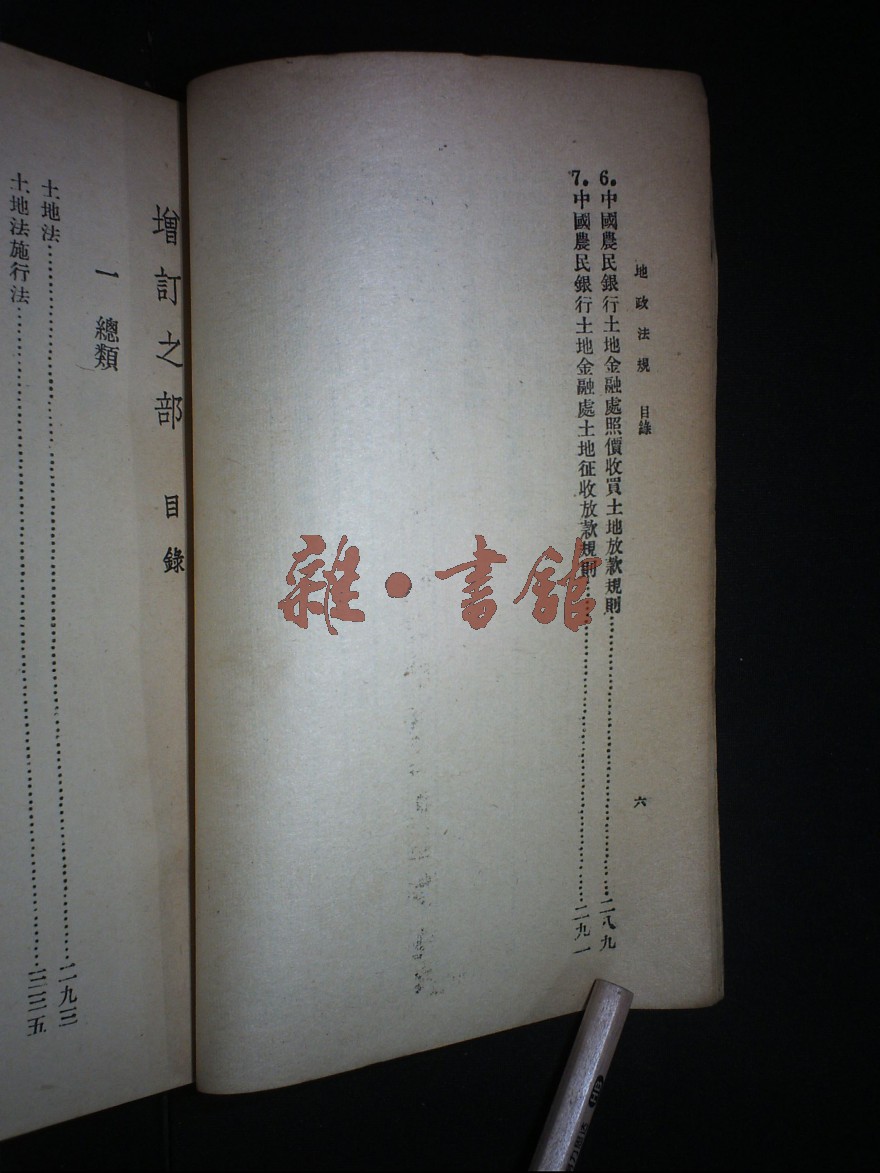 地政法規 目錄 六
6.中國農民銀行土地金融處照價收買土地放款規則……二八九
7.中國農民銀行土地金融處土地征收放款規則……二九一
增訂之部 目錄
一 總類
土地法……二九三
土地法施行法……三三五
雜·書館
HB